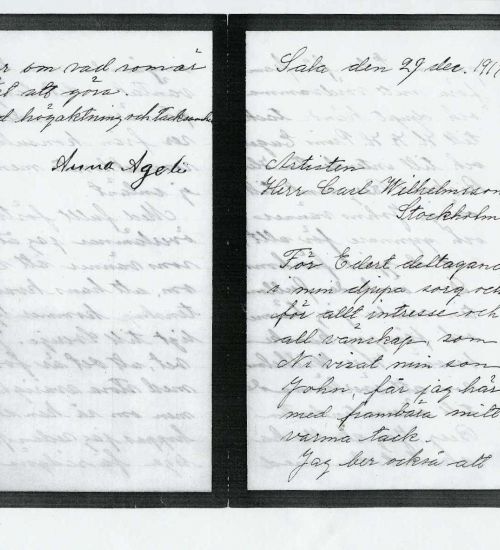 r om vad som är
att göra.
d högaktning och tacksamhet
Anna Agelii
Sala den 29 dec. 1917
Artisten
Herr Carl Wilhelmson
Stockholm
För Edert deltagand
i min djupa sorg och
för allt intresse och
all vänskap, som
Ni visat min son
John, får jag här
med frambära mitt
varma tack.
Jag ber också att